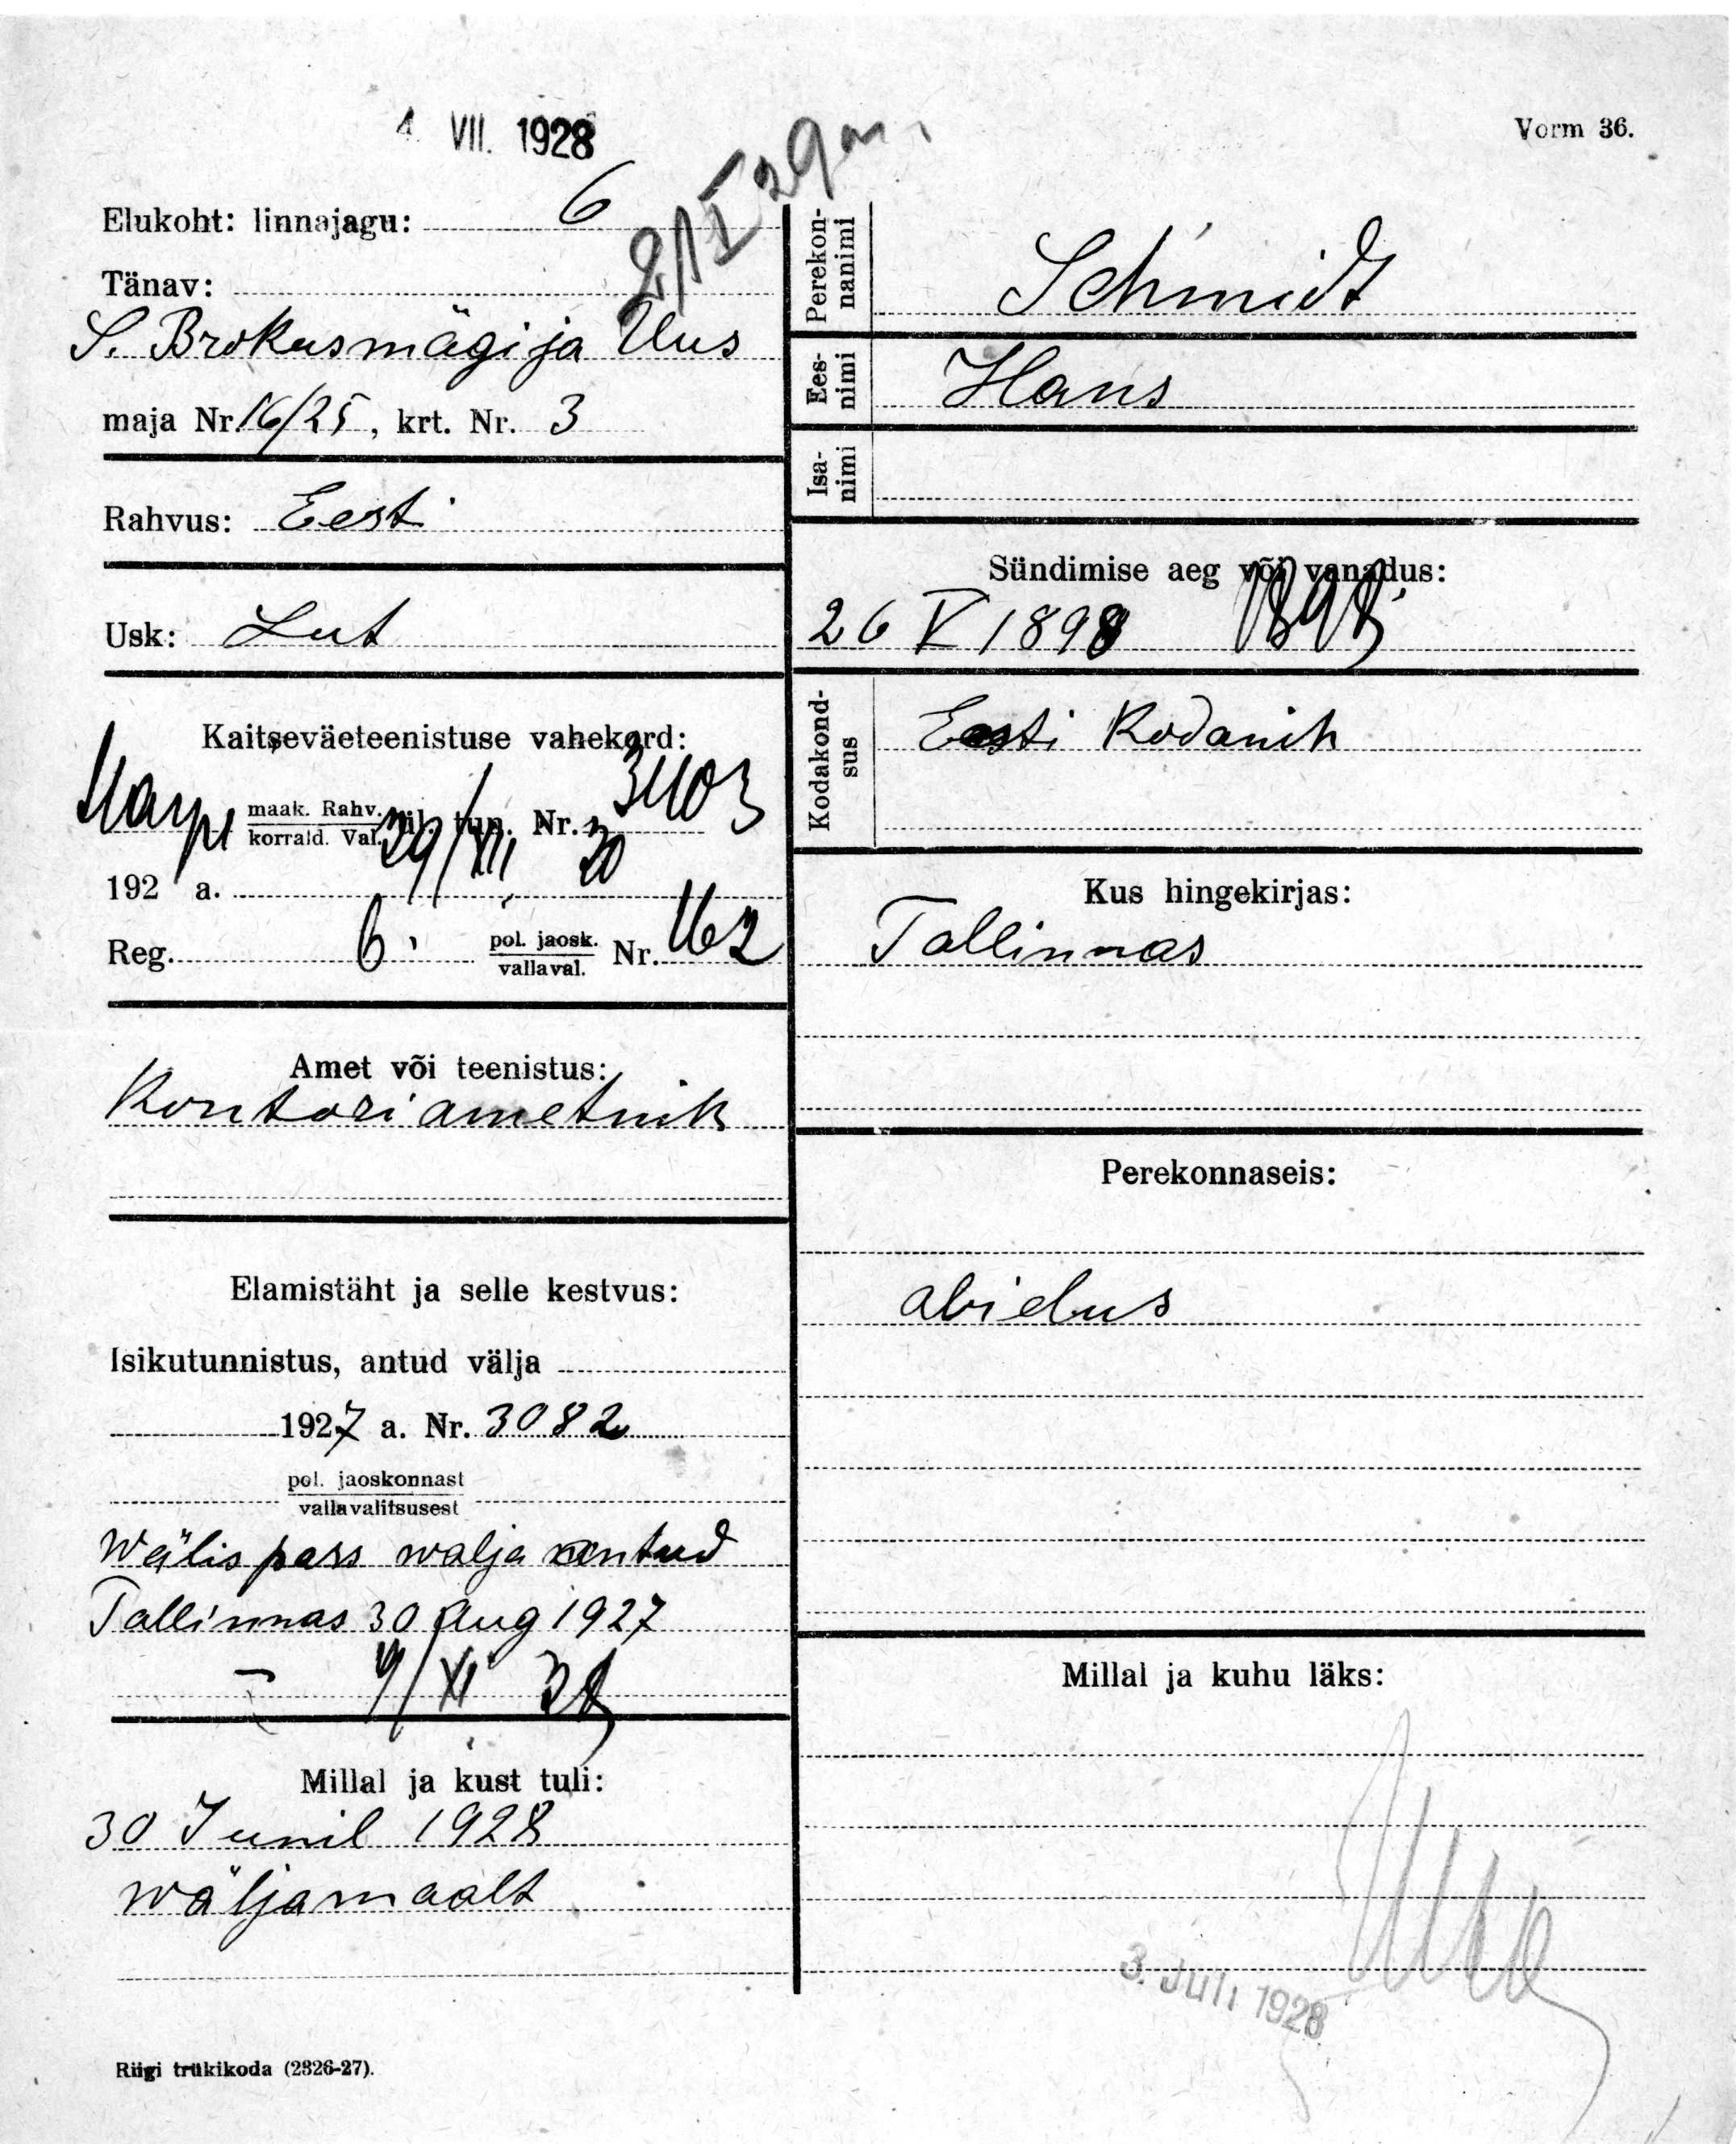 4. VII. 1928
Vorm 36.
2/I 29
Elukoht: linnajagu: 6
Tänav:
S. Brokusmägi ja Uus
maja Nr. 16/25, krt. Nr. 3
Rahvus: Eesti
Usk: Lut
Kaitseväeteenistuse vahekord:
Harju maak. Rahv. korrald. Val. tun. Nr. 3403
29/XII 20
192 a.
Reg. 6. pol. jaosk. vallaval. Nr. 162
Amet või teenistus:
Kontoriametnik
Elamistäht ja selle kestvus:
Isikutunnistus, antud välja
1927 a. Nr. 3082
pol. jaoskonnast
vallavalitsusest
Wälispass walja antud
Tallinnas 30 Aug 1927
Millal ja kust tuli:
30 Junil 1928
wäljamaalt
Riigi trükikoda (2326-27).
Perekon-
nanimi
Schmidt
Ees-
nimi
Hans
Isa-
nimi
Sündimise aeg või vanadus:
26 V 1898 1898
Kodakond-
sus
Eesti Kodanik
Kus hingekirjas:
Tallinnas
Perekonnaseis:
abielus
Millal ja kuhu läks:
3. Juli 1928